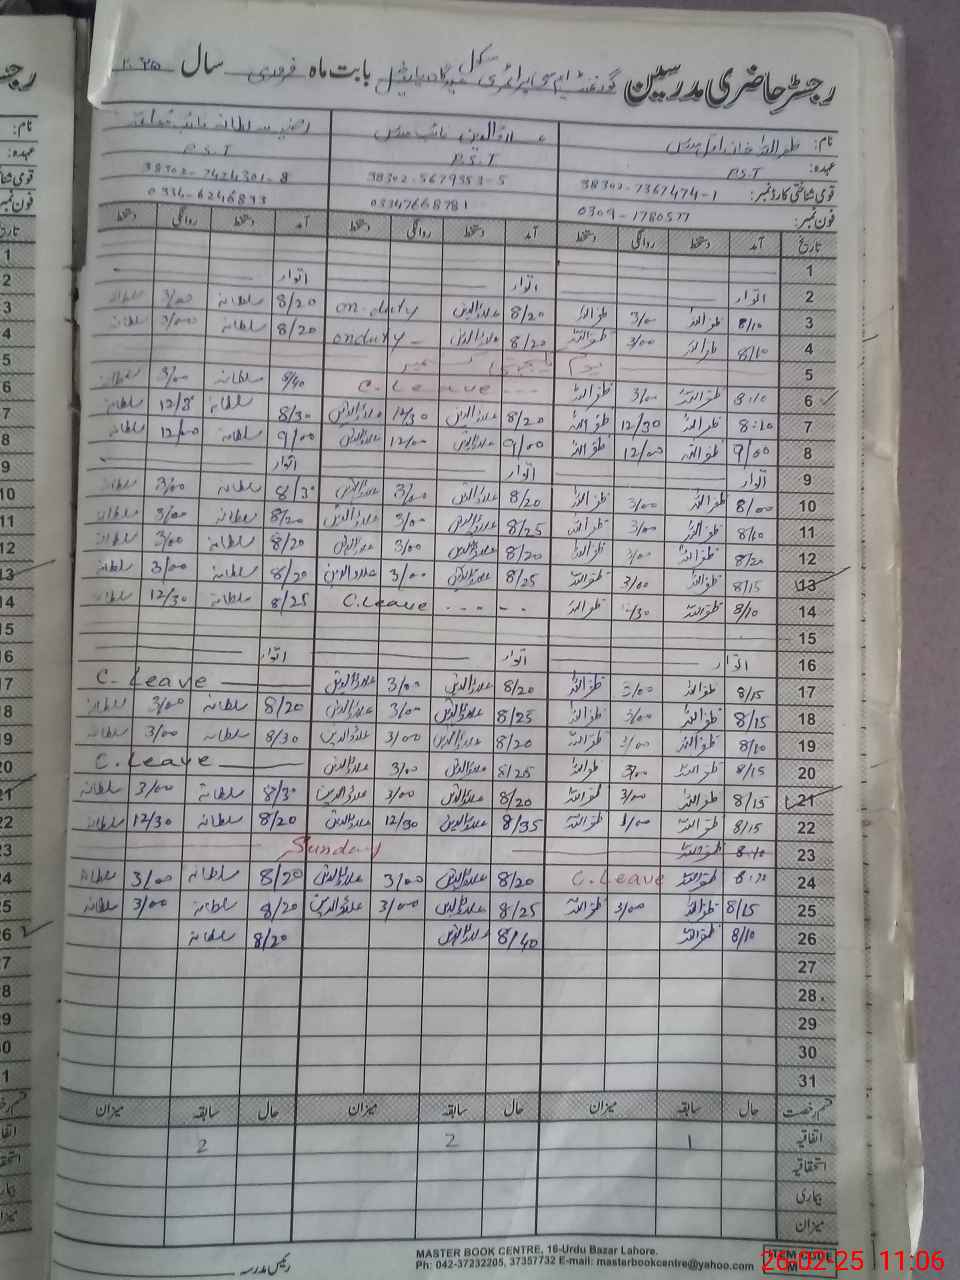 رجسٹر حاضری مدرسین گورنمنٹ ایم سی پرائمری سکول بابت ماہ فروری سال
نام: ظفر اللہ خان علاؤالدین نائب مدرس سلطانہ
عہدہ: P.S.T P.S.T P.S.T
قومی شناختی کارڈ نمبر: 38302-7367474-1 38302-5679353-5 38302-7424301-8
فون نمبر: 0309-1780577 03347668781 0334-6246893
تاریخ آمد دستخط روانگی دستخط آمد دستخط روانگی دستخط آمد دستخط روانگی دستخط
1
2 اتوار اتوار اتوار
3 8/10 ظفراللہ 3/00 ظفراللہ 8/20 علاؤالدین on.duty 8/20 سلطانہ 3/00 سلطانہ
4 8/10 ظفراللہ 3/00 ظفراللہ 8/20 علاؤالدین onduty 8/20 سلطانہ 3/00 سلطانہ
5 یوم یکجہتی کشمیر
6 8:10 ظفراللہ 3/00 ظفراللہ C. Leave 8/40 سلطانہ 3/00 سلطانہ
7 8:10 ظفراللہ 12/30 ظفراللہ 8/20 علاؤالدین 12/30 علاؤالدین 8/30 سلطانہ سلطانہ
8 9/00 ظفراللہ 12/00 ظفراللہ 9/00 علاؤالدین 12/00 علاؤالدین 9/00 سلطانہ 12/00 سلطانہ
9 اتوار اتوار اتوار
10 8/00 ظفراللہ 3/00 ظفراللہ 8/20 علاؤالدین 3/00 علاؤالدین 8/30 سلطانہ 3/00 سلطانہ
11 8/10 ظفراللہ 3/00 ظفراللہ 8/25 علاؤالدین 3/00 علاؤالدین 8/20 سلطانہ 3/00 سلطانہ
12 8/20 ظفراللہ 3/00 ظفراللہ 8/20 علاؤالدین 3/00 علاؤالدین 8/20 سلطانہ 3/00 سلطانہ
13 8/15 ظفراللہ 3/00 ظفراللہ 8/25 علاؤالدین 3/00 علاؤالدین 8/20 سلطانہ 3/00 سلطانہ
14 8/10 ظفراللہ ظفراللہ C.Leave 8/25 سلطانہ 12/30 سلطانہ
15
16 اتوار اتوار اتوار
17 8/15 ظفراللہ 3/00 ظفراللہ 8/20 علاؤالدین 3/00 علاؤالدین C. Leave
18 8/15 ظفراللہ 3/00 ظفراللہ 8/25 علاؤالدین 3/00 علاؤالدین 8/20 سلطانہ 3/00 سلطانہ
19 8/10 ظفراللہ 3/00 ظفراللہ 8/20 علاؤالدین 3/00 علاؤالدین 8/30 سلطانہ 3/00 سلطانہ
20 8/15 ظفراللہ 3/00 ظفراللہ 8/25 علاؤالدین 3/00 علاؤالدین C. Leave
21 8/15 ظفراللہ 3/00 ظفراللہ 8/20 علاؤالدین 3/00 علاؤالدین 8/30 سلطانہ 3/00 سلطانہ
22 8/15 ظفراللہ ظفراللہ 8/35 علاؤالدین 12/30 علاؤالدین 8/20 سلطانہ 12/30 سلطانہ
23 8:10 ظفراللہ Sunday
24 ظفراللہ C.Leave 8/20 علاؤالدین 3/00 علاؤالدین 8/20 سلطانہ 3/00 سلطانہ
25 8/15 ظفراللہ 3/00 ظفراللہ 8/25 علاؤالدین 3/00 علاؤالدین 8/20 سلطانہ 3/00 سلطانہ
26 8/10 ظفراللہ 8/40 علاؤالدین 8/20 سلطانہ
27
28
29
30
31
قسم رخصت حال سابقہ میزان حال سابقہ میزان حال سابقہ میزان
اتفاقیہ 1 2 2
استحقاقیہ
بیماری
میزان
رئیس مدرسہ
MASTER BOOK CENTRE, 16-Urdu Bazar Lahore.
Ph: 042-37232205, 37357732 E-mail: masterbookcentre@yahoo.com
ITEM CODE
26-02-25 11:06